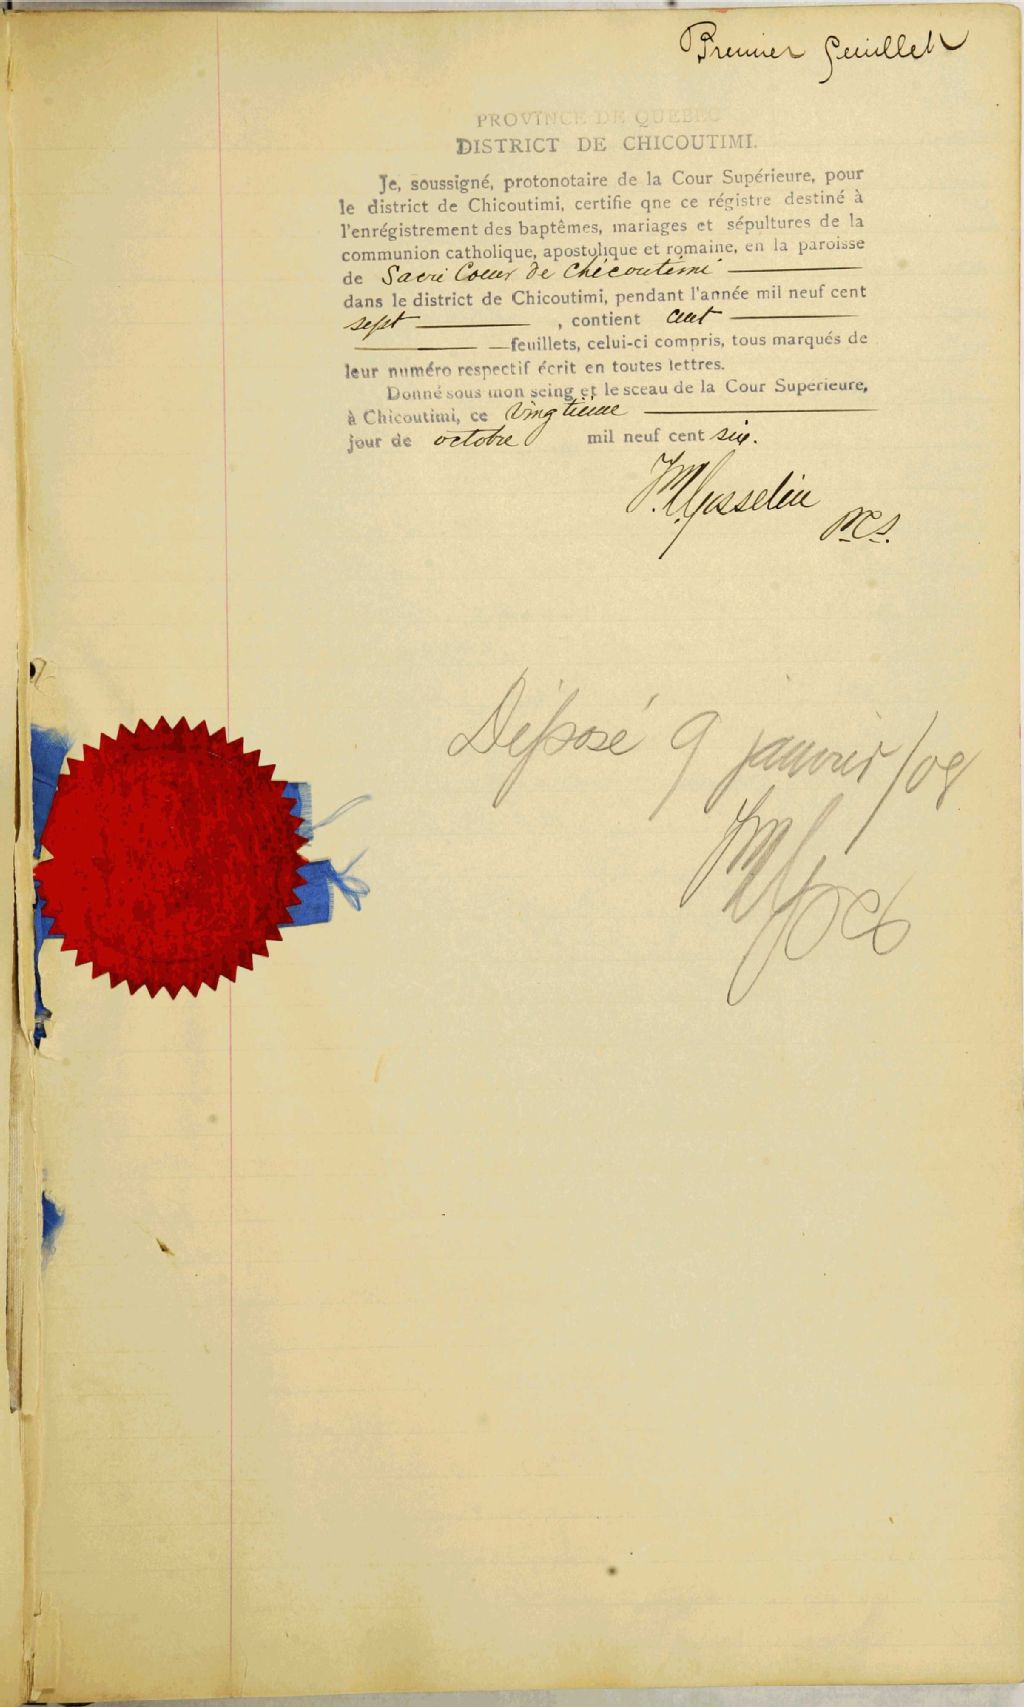 Premier feuillet
PROVINCE DE QUEBEC
DISTRICT DE CHICOUTIMI.
Je, soussigné, protonotaire de la Cour Supérieure, pour
le district de Chicoutimi, certifie qne ce régistre destiné à
l'enrégistrement des baptêmes, mariages et sépultures de la
communion catholique, apostolique et romaine, en la paroisse
de Sacré Coeur de Chicoutimi
dans le district de Chicoutimi, pendant l'année mil neuf cent
sept , contient cent
feuillets, celui-ci compris, tous marqués de
leur numéro respectif écrit en toutes lettres.
Donné sous mon seing et le sceau de la Cour Superieure,
à Chicoutimi, ce vingtième
jour de octobre mil neuf cent six.
Gosselin
P.C.S.
Déposé 9 janvier /08